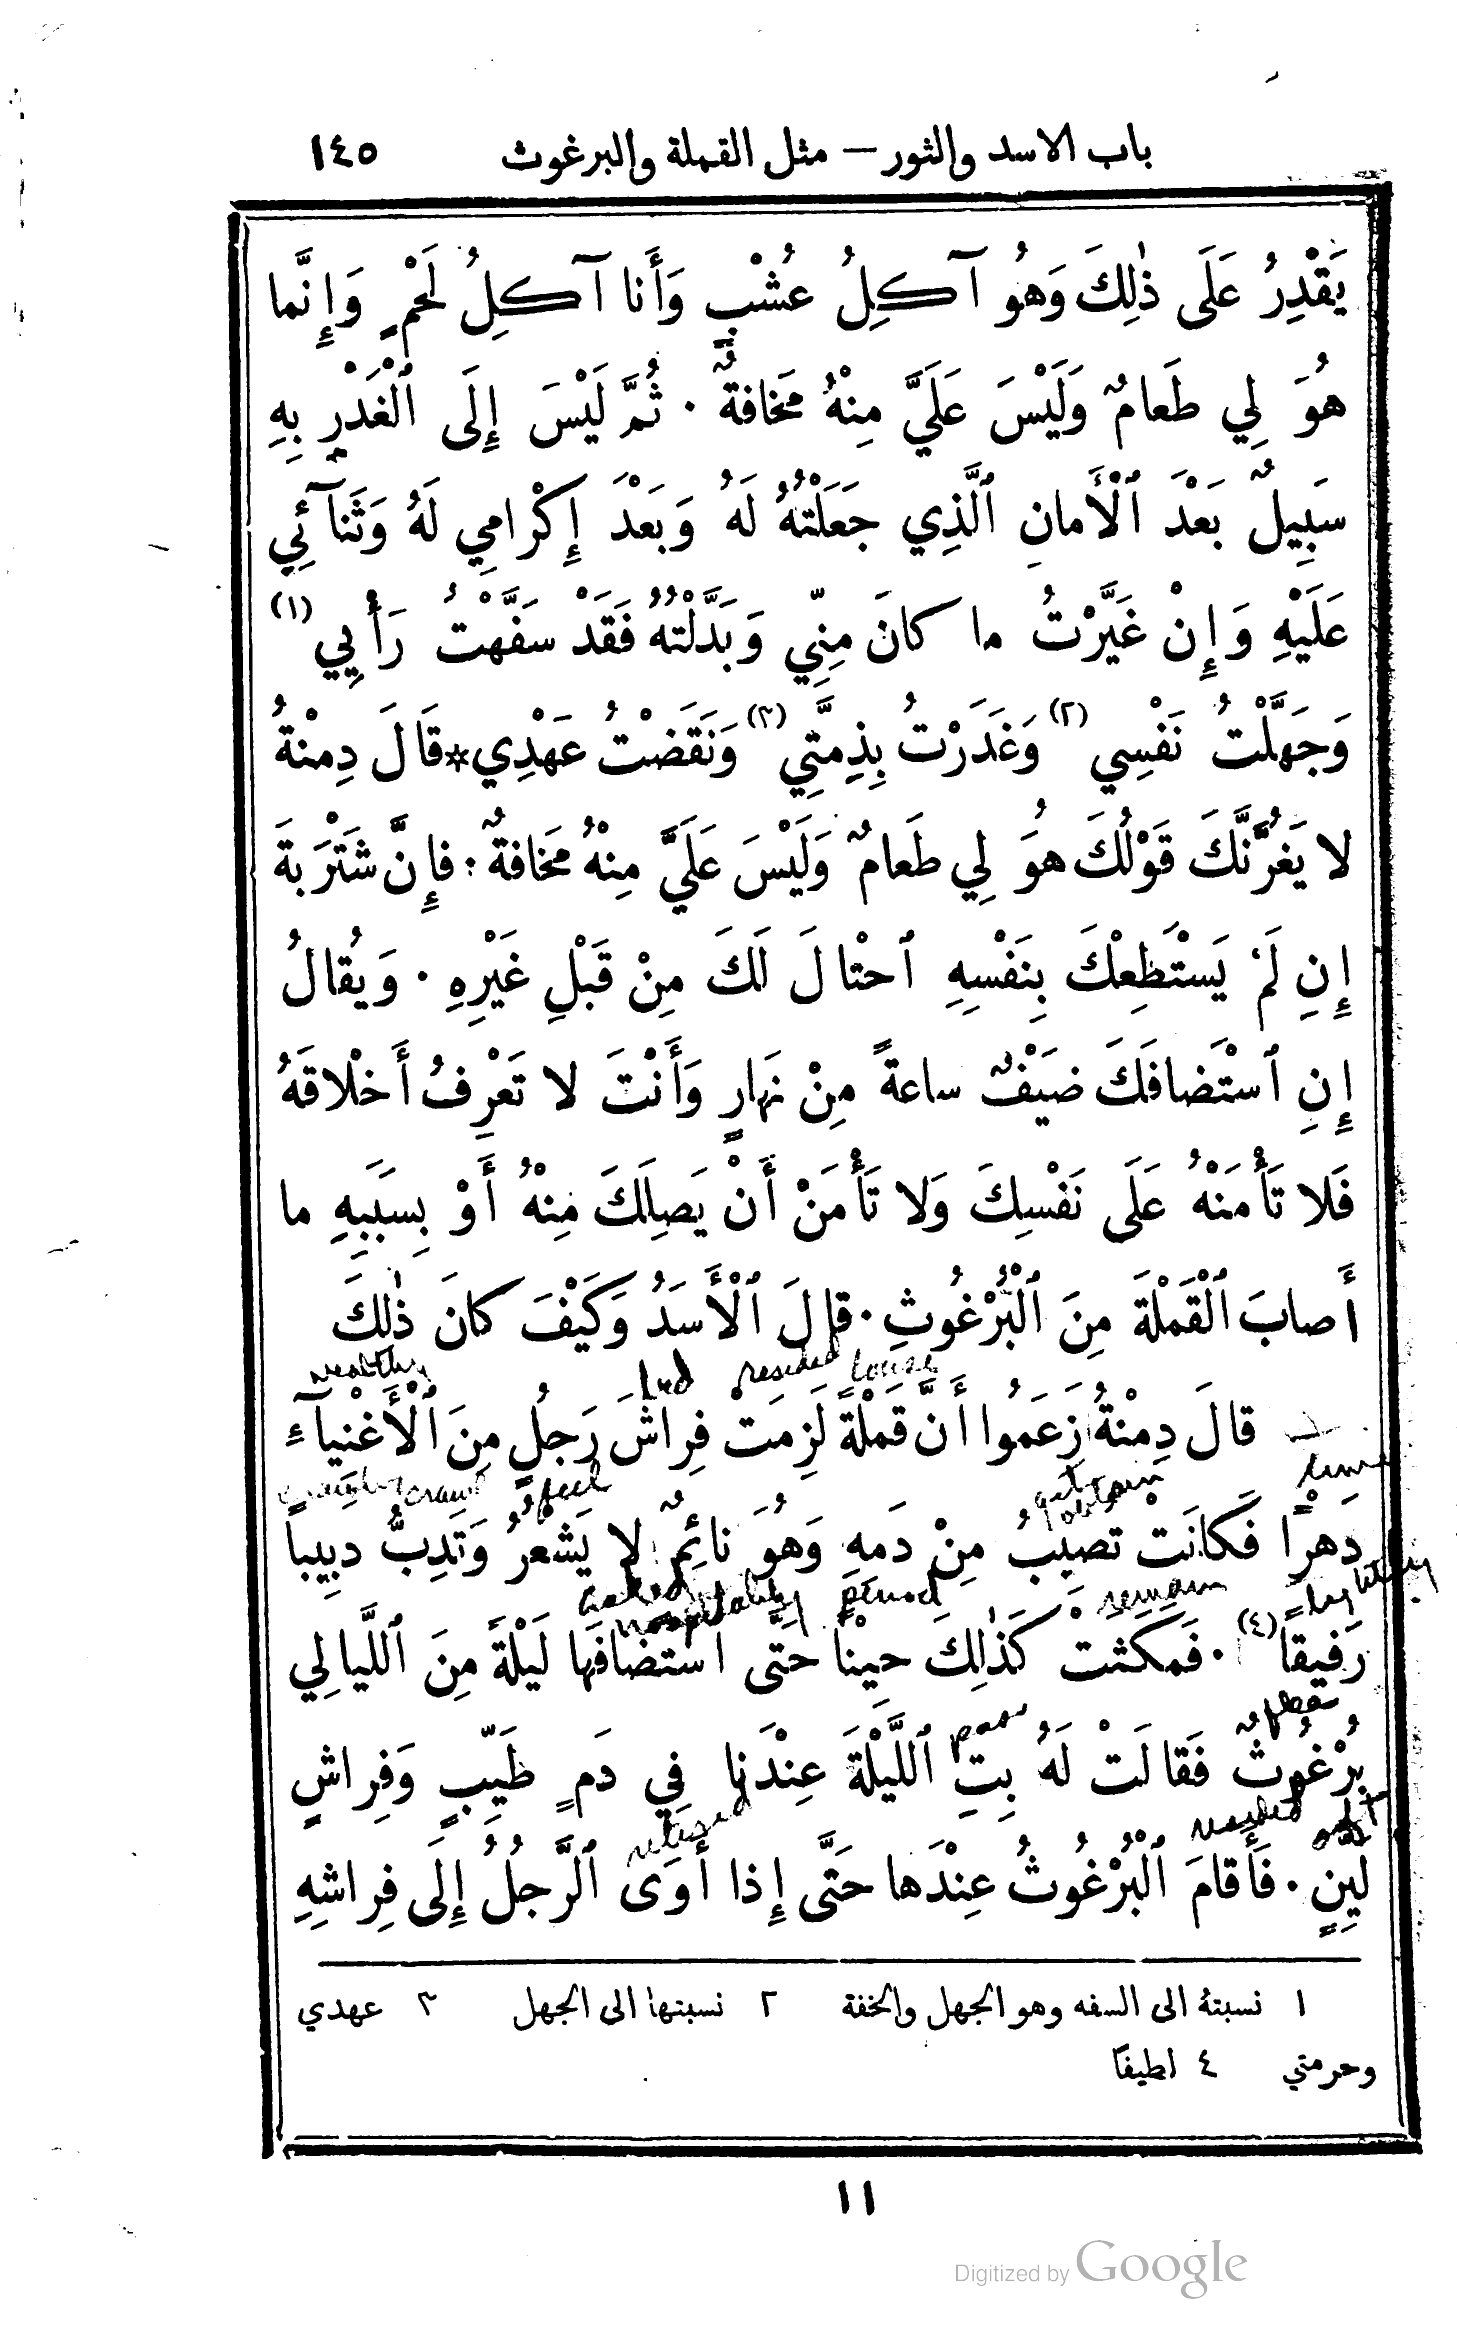 باب الاسد والثور — مثل القملة والبرغوث ١٤٥
يَقْدِرُ عَلَى ذٰلِكَ وَهُوَ آكِلُ عُشْبٍ وَأَنا آكِلُ لَحْمٍ وَإِنَّما
هُوَ لِي طَعامٌ وَلَيْسَ عَلَيَّ مِنْهُ مَخافةٌ ٠ ثُمَّ لَيْسَ إِلَى ٱلْغَدْرِ بِهِ
سَبِيلٌ بَعْدَ ٱلْأَمانِ ٱلَّذِي جَعَلْتُهُ لَهُ وَبَعْدَ إِكْرامِي لَهُ وَثَنآئِي
عَلَيْهِ وَإِنْ غَيَّرْتُ ما كانَ مِنِّي وَبَدَّلْتُهُ فَقَدْ سَفَّهْتُ رَأْيِي (١)
وَجَهَّلْتُ نَفْسِي (٢) وَغَدَرْتُ بِذِمَّتِي (٣) وَنَقَضْتُ عَهْدِي * قَالَ دِمْنةُ
لا يَغُرَّنَّكَ قَوْلُكَ هُوَ لِي طَعامٌ وَلَيْسَ عَلَيَّ مِنْهُ مَخافةٌ : فإِنَّ شَتْرَبةَ
إِنِ لَمْ يَسْتَطِعْكَ بِنَفْسِهِ ٱحْتالَ لَكَ مِنْ قَبْلِ غَيْرِهِ ٠ وَيُقالُ
إِنِ ٱسْتَضافَكَ ضَيْفٌ ساعةً مِنْ نَهارٍ وَأَنْتَ لا تَعْرِفُ أَخْلاقَهُ
فَلا تَأْمَنْهُ عَلَى نَفْسِكَ وَلا تَأْمَنْ أَنْ يَصِلَكَ مِنْهُ أَوْ بِسَبَبِهِ ما
أَصابَ ٱلْقَمْلةَ مِنَ ٱلْبُرْغُوثِ ٠ قالَ ٱلْأَسَدُ وَكَيْفَ كانَ ذٰلِكَ
wealthy bed resided louse
قالَ دِمْنةُ زَعَمُوا أَنَّ قَمْلةً لَزِمَتْ فِراشَ رَجُلٍ مِنَ ٱلْأَغْنِيآءِ
crawl feel obtain time
دَهرًا فَكانَتْ تُصِيبُ مِنْ دَمِهِ وَهُوَ نائِمٌ لا يَشْعُرُ وَتَدِبُّ دبِيباً
asked hospitality period remain
رَفِيقاً (٤) ٠ فَمَكَثَتْ كَذٰلِكَ حيْناً حَتَّى ٱسْتَضافَها لَيْلةً مِنَ ٱللَّيالِي
pass
بُرْغُوثٌ فَقالَتْ لَهُ بِتِ ٱللَّيْلةَ عِنْدَنا فِي دَمٍ طَيِّبٍ وَفِراشٍ
soft
لَيِّنٍ ٠ فَأَقامَ ٱلْبُرْغُوثُ عِنْدَها حَتَّى إِذا أَوَى ٱلرَّجُلُ إِلَى فِراشِهِ
١ نسبتهُ الى السفه وهو الجهل والخفة ٢ نسبتها الى الجهل ٣ عهدي
وحرمتي ٤ لطيفًا
١١
Digitized by Google